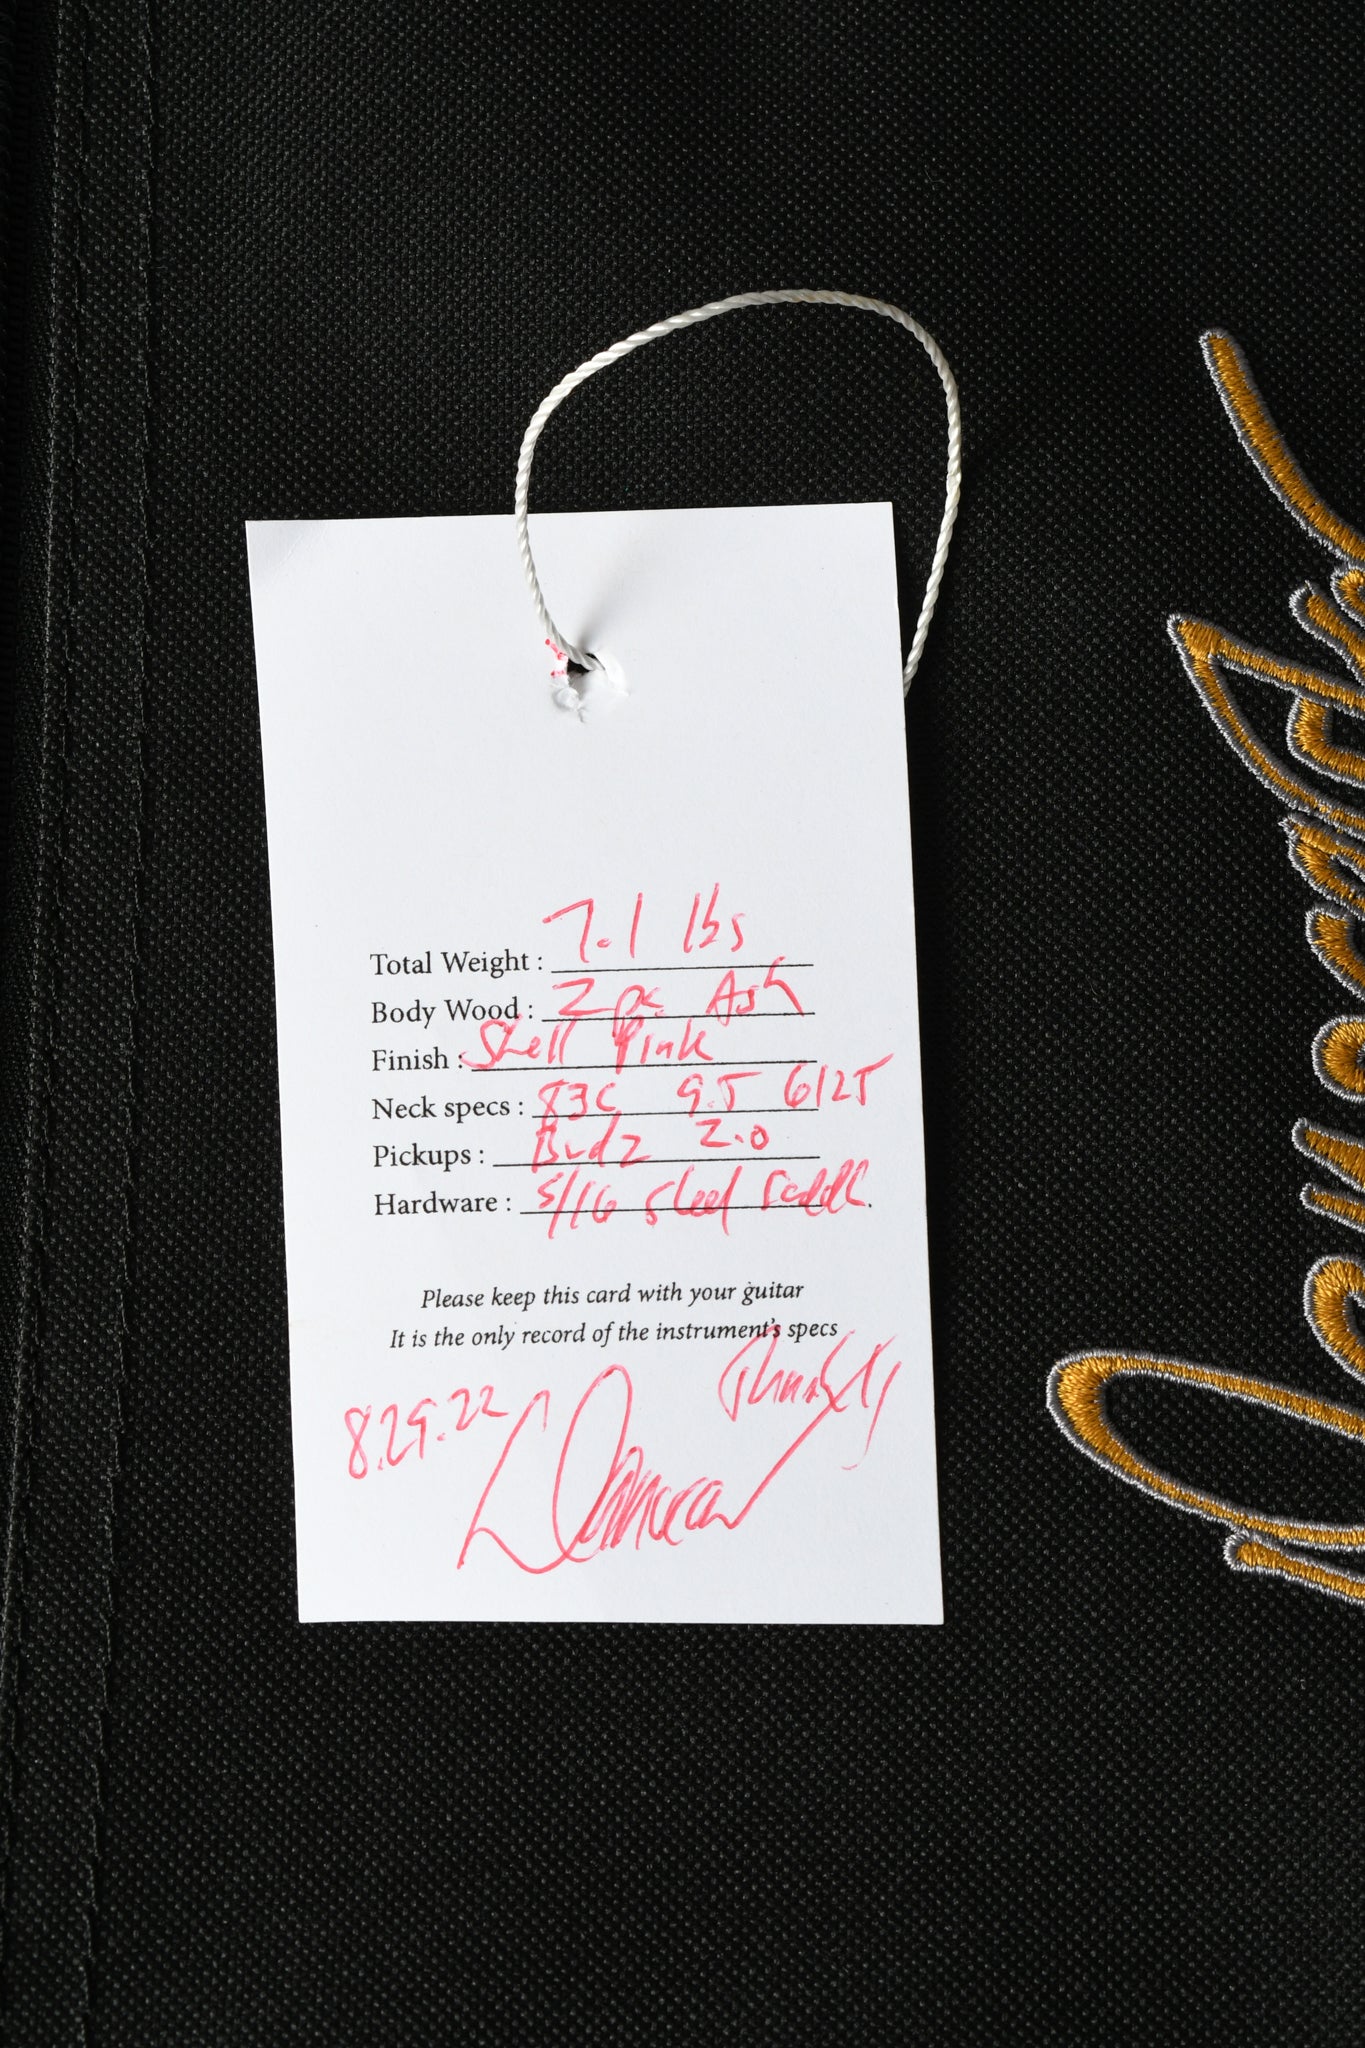 Total Weight : 7.1 lbs
Body Wood : 2 pc. Ash
Finish : Shell Pink
Neck specs : 83C 9.5 6125
Pickups : Budz 2.0
Hardware : 5/16 steel saddle.
Please keep this card with your guitar
It is the only record of the instrument's specs
8.29.22